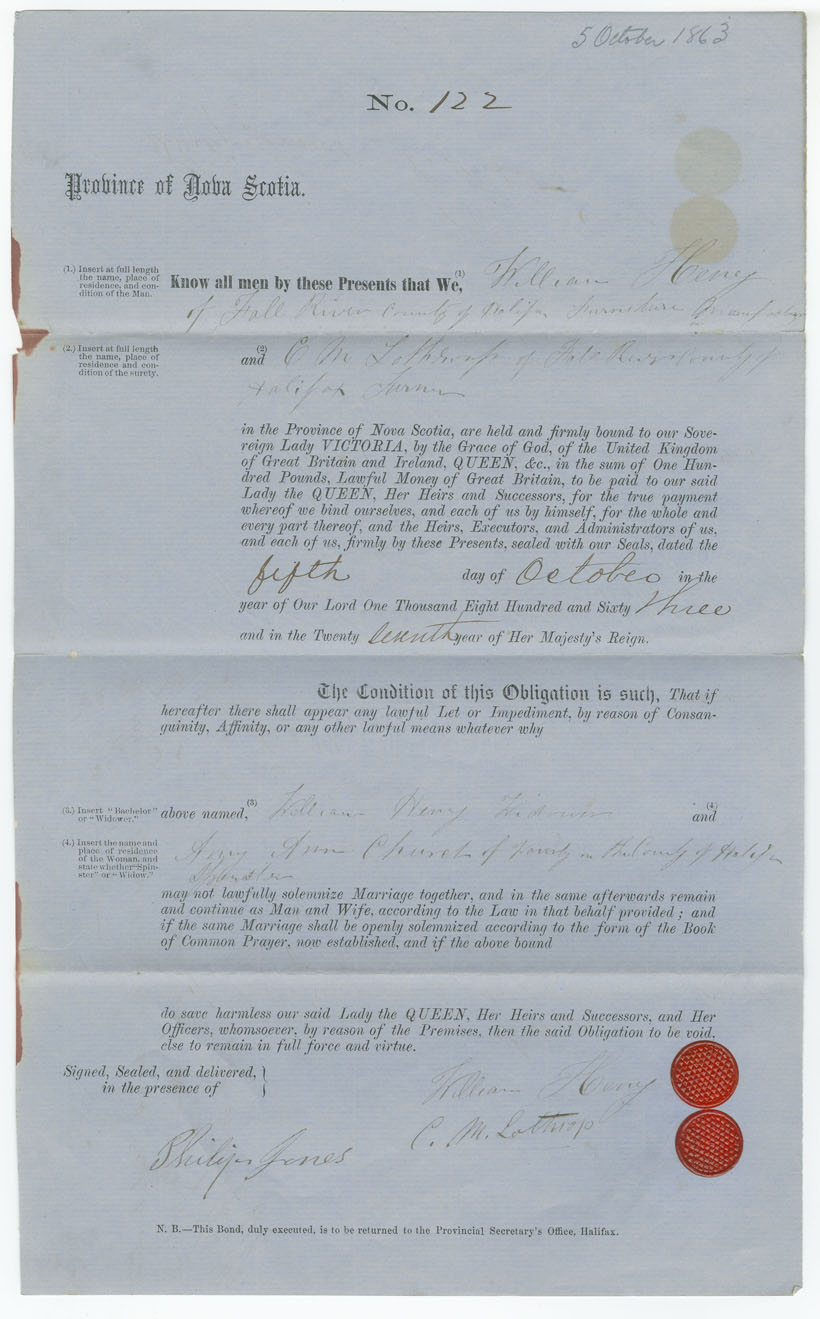 5 October 1863
No. 122
Province of Nova Scotia.
(1.) Insert at full length
the name, place of
residence, and con-
dition of the Man.
Know all men by these Presents that We, (1) William Henry
of Fall River County of Halifax Furniture
(2.) Insert at full length
the name, place of
residence and con-
dition of the surety.
and (2) C M Lothrop of Fall River County of
Halifax
in the Province of Nova Scotia, are held and firmly bound to our Sove-
reign Lady VICTORIA, by the Grace of God, of the United Kingdom
of Great Britain and Ireland, QUEEN, &c., in the sum of One Hun-
dred Pounds, Lawful Money of Great Britain, to be paid to our said
Lady the QUEEN, Her Heirs and Successors, for the true payment
whereof we bind ourselves, and each of us by himself, for the whole and
every part thereof, and the Heirs, Executors, and Administrators of us,
and each of us, firmly by these Presents, sealed with our Seals, dated the
fifth day of October in the
year of Our Lord One Thousand Eight Hundred and Sixty three
and in the Twenty seventh year of Her Majesty's Reign.
The Condition of this Obligation is such, That if
hereafter there shall appear any lawful Let or Impediment, by reason of Consan-
guinity, Affinity, or any other lawful means whatever why
(3.) Insert "Bachelor"
or "Widower."
above named, (3) William Henry Widower (4) and
(4.) Insert the name and
place of residence
of the Woman, and
state whether "Spin-
ster" or "Widow."
Ann Church of in the County of Halifax
Spinster
may not lawfully solemnize Marriage together, and in the same afterwards remain
and continue as Man and Wife, according to the Law in that behalf provided; and
if the same Marriage shall be openly solemnized according to the form of the Book
of Common Prayer, now established, and if the above bound
do save harmless our said Lady the QUEEN, Her Heirs and Successors, and Her
Officers, whomsoever, by reason of the Premises, then the said Obligation to be void,
else to remain in full force and virtue.
Signed, Sealed, and delivered,
in the presence of
William Henry
C. M. Lothrop
Philip Jones
N. B.—This Bond, duly executed, is to be returned to the Provincial Secretary's Office, Halifax.